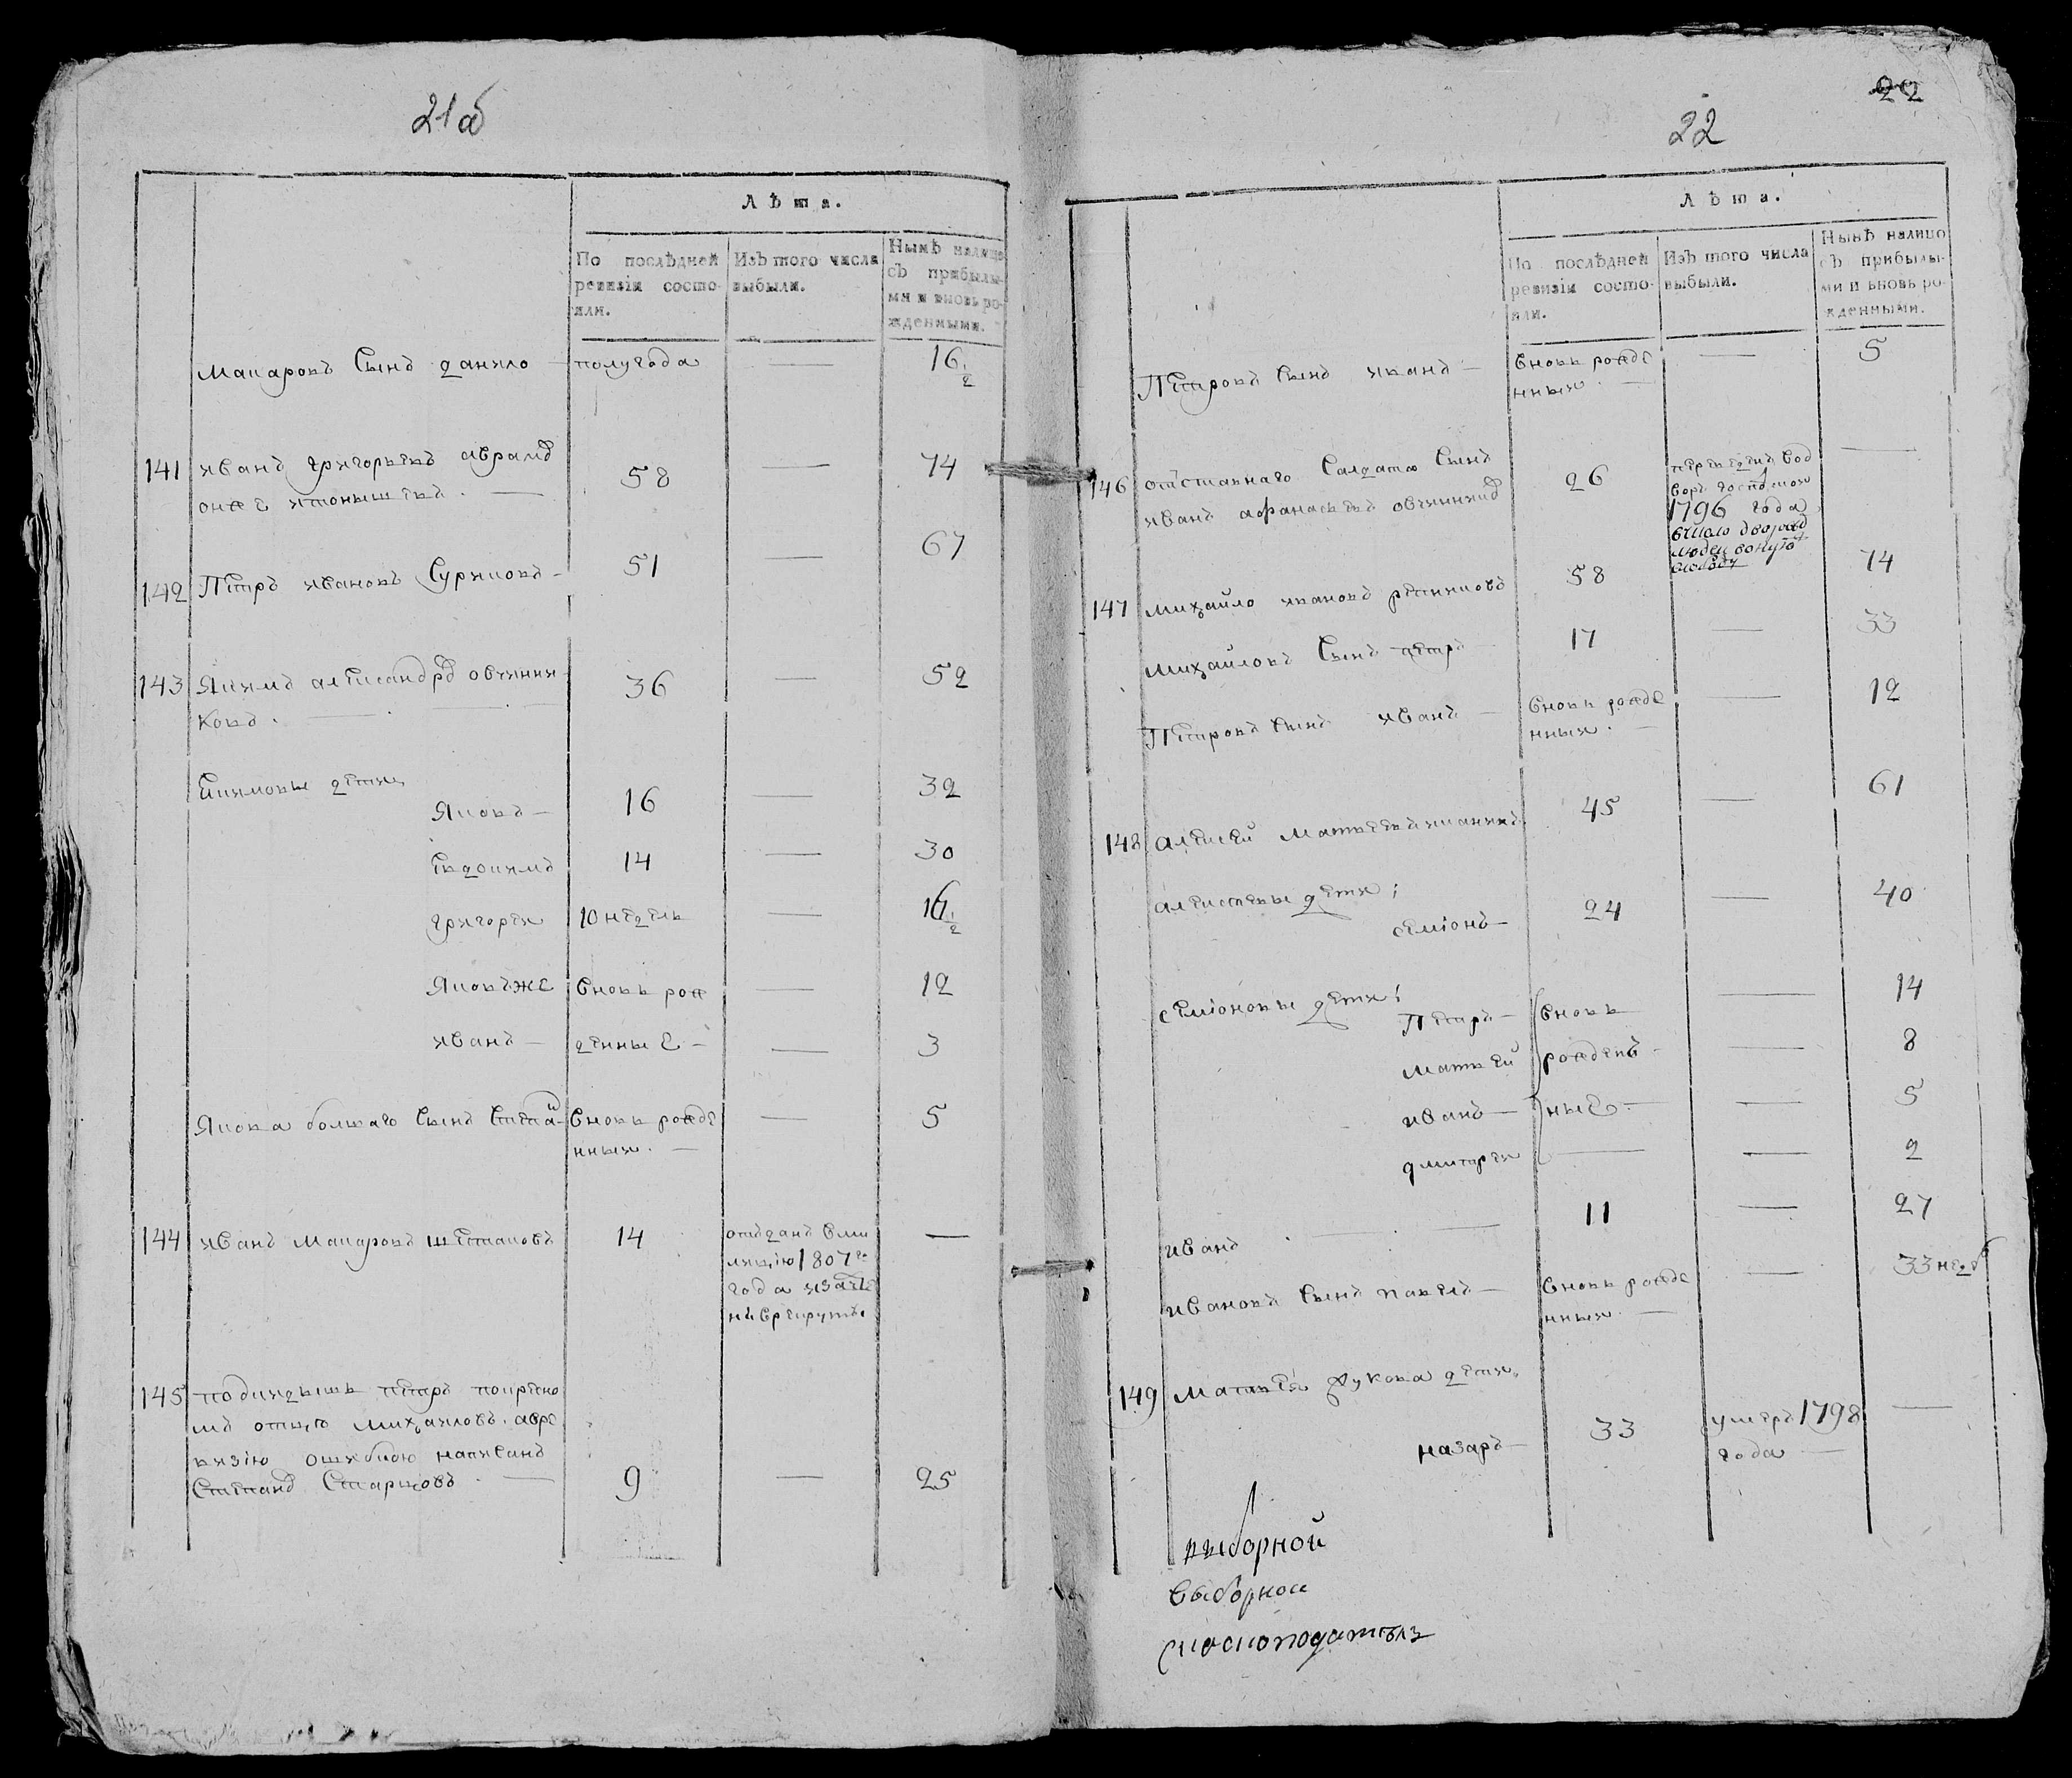 21 об
Лѣта.
По послѣдней ревизіи состояли.
Изъ того числа выбыли.
Нынѣ налицо съ прибылыми и вновь рожденными.
Макаровъ сынъ данило — полугода — 16 1/2
141 иванъ григорьевъ авраамъ 58 — 74
онже
142 Петръ ивановъ Суриковъ — 51 — 67
143 Якимъ александръ овчинни 36 — 52
ковъ. —
Екимовы дети
Яковъ — 16 — 32
Евдокимъ 14 — 30
григореи 10 недель — 16 1/2
Яковъ же вновь рож — 12
иванъ — денные — 3
Якова большаго сынъ степанъ вновь рожде — 5
нныи. —
144 иванъ макаровъ шестаковъ 14 отъданъ вми —
лицию 1807 го
года изаче
нъ врекруты
145 подкидышь петръ покрестно
мъ отцъ михаиловъ. авре
визію ошибкою написанъ
степанъ Старцовъ. — 9 — 25
22
22
Лѣта.
По послѣдней ревизіи состояли.
Изъ того числа выбыли.
Нынѣ налицо съ прибылыми и вновь рожденными.
Петровъ сынъ иванъ — вновь рожде — 5
нныи. —
146 отставнаго салдата сынъ 26 —
иванъ афанасьевъ овчинникъ
1796 года
вчисло дворовъ
людей
147 михайло ивановъ решниковъ 58 74
михайловъ сынъ петръ — 17 — 33
Петровъ сынъ иванъ — вновь рожде — 12
нныи. —
148 алексей матвеевъ 45 — 61
алексеевы дети:
семіонъ — 24 — 40
семіоновы дети:
Петръ — вновь — 14
матвей рожден — 8
иванъ — ные — 5
дмитреи — — 2
иванъ — 11 — 27
ивановъ сынъ павелъ — вновь рожде — 33 нед
нныи. —
149 матвея лукова дети.
назаръ — 33 умеръ 1798 —
года —
выборной
выборной
сказкоподатель